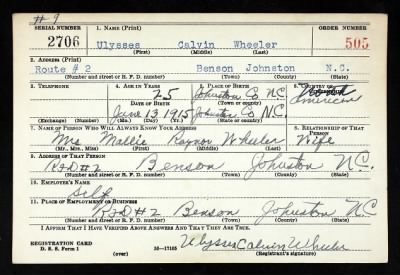 # 9
SERIAL NUMBER 1. NAME (Print) ORDER NUMBER
2706 Ulysses Calvin Wheeler 505
(First) (Middle) (Last)
2. ADDRESS (Print)
Route # 2 Benson Johnston N.C.
(Number and street or R. F. D. number) (Town) (County) (State)
3. TELEPHONE 4. AGE IN YEARS 5. PLACE OF BIRTH 6. COUNTRY OF
25 Johnston Co N.C.
DATE OF BIRTH (Town or county) American
June 13 1915 Johnston Co N.C.
(Exchange) (Number) (Mo.) (Day) (Yr.) (State or country)
7. NAME OF PERSON WHO WILL ALWAYS KNOW YOUR ADDRESS 8. RELATIONSHIP OF THAT PERSON
Mrs Mallie Raynor Wheeler Wife
(Mr., Mrs., Miss) (First) (Middle) (Last)
9. ADDRESS OF THAT PERSON
RFD # 2 Benson Johnston N.C.
(Number and street or R. F. D. number) (Town) (County) (State)
10. EMPLOYER'S NAME
Self
11. PLACE OF EMPLOYMENT OR BUSINESS
RFD # 2 Benson Johnston N.C
(Number and street or R. F. D. number) (Town) (County) (State)
I AFFIRM THAT I HAVE VERIFIED ABOVE ANSWERS AND THAT THEY ARE TRUE.
REGISTRATION CARD Ulysses Calvin Wheeler
D. S. S. Form 1 16—17105 (over) (Registrant's signature)